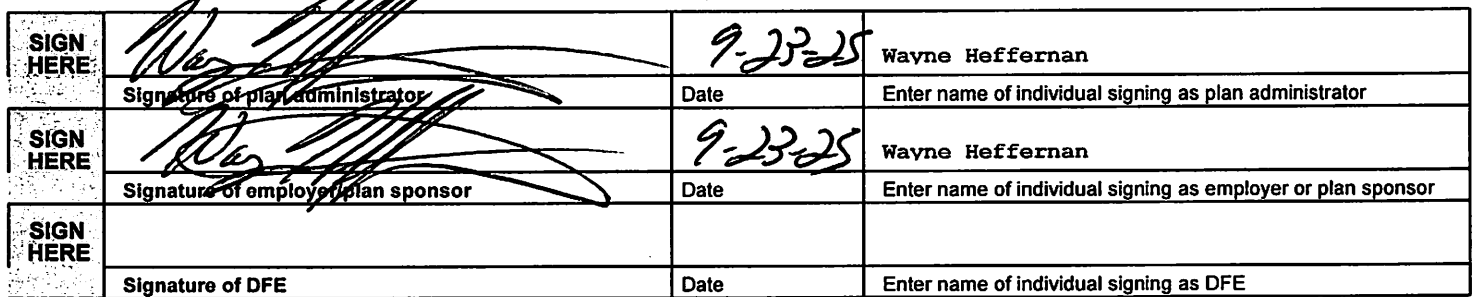 SIGN HERE 9-23-25 Wayne Heffernan
Signature of plan administrator Date Enter name of individual signing as plan administrator
SIGN HERE 9-23-25 Wayne Heffernan
Signature of employer/plan sponsor Date Enter name of individual signing as employer or plan sponsor
SIGN HERE
Signature of DFE Date Enter name of individual signing as DFE